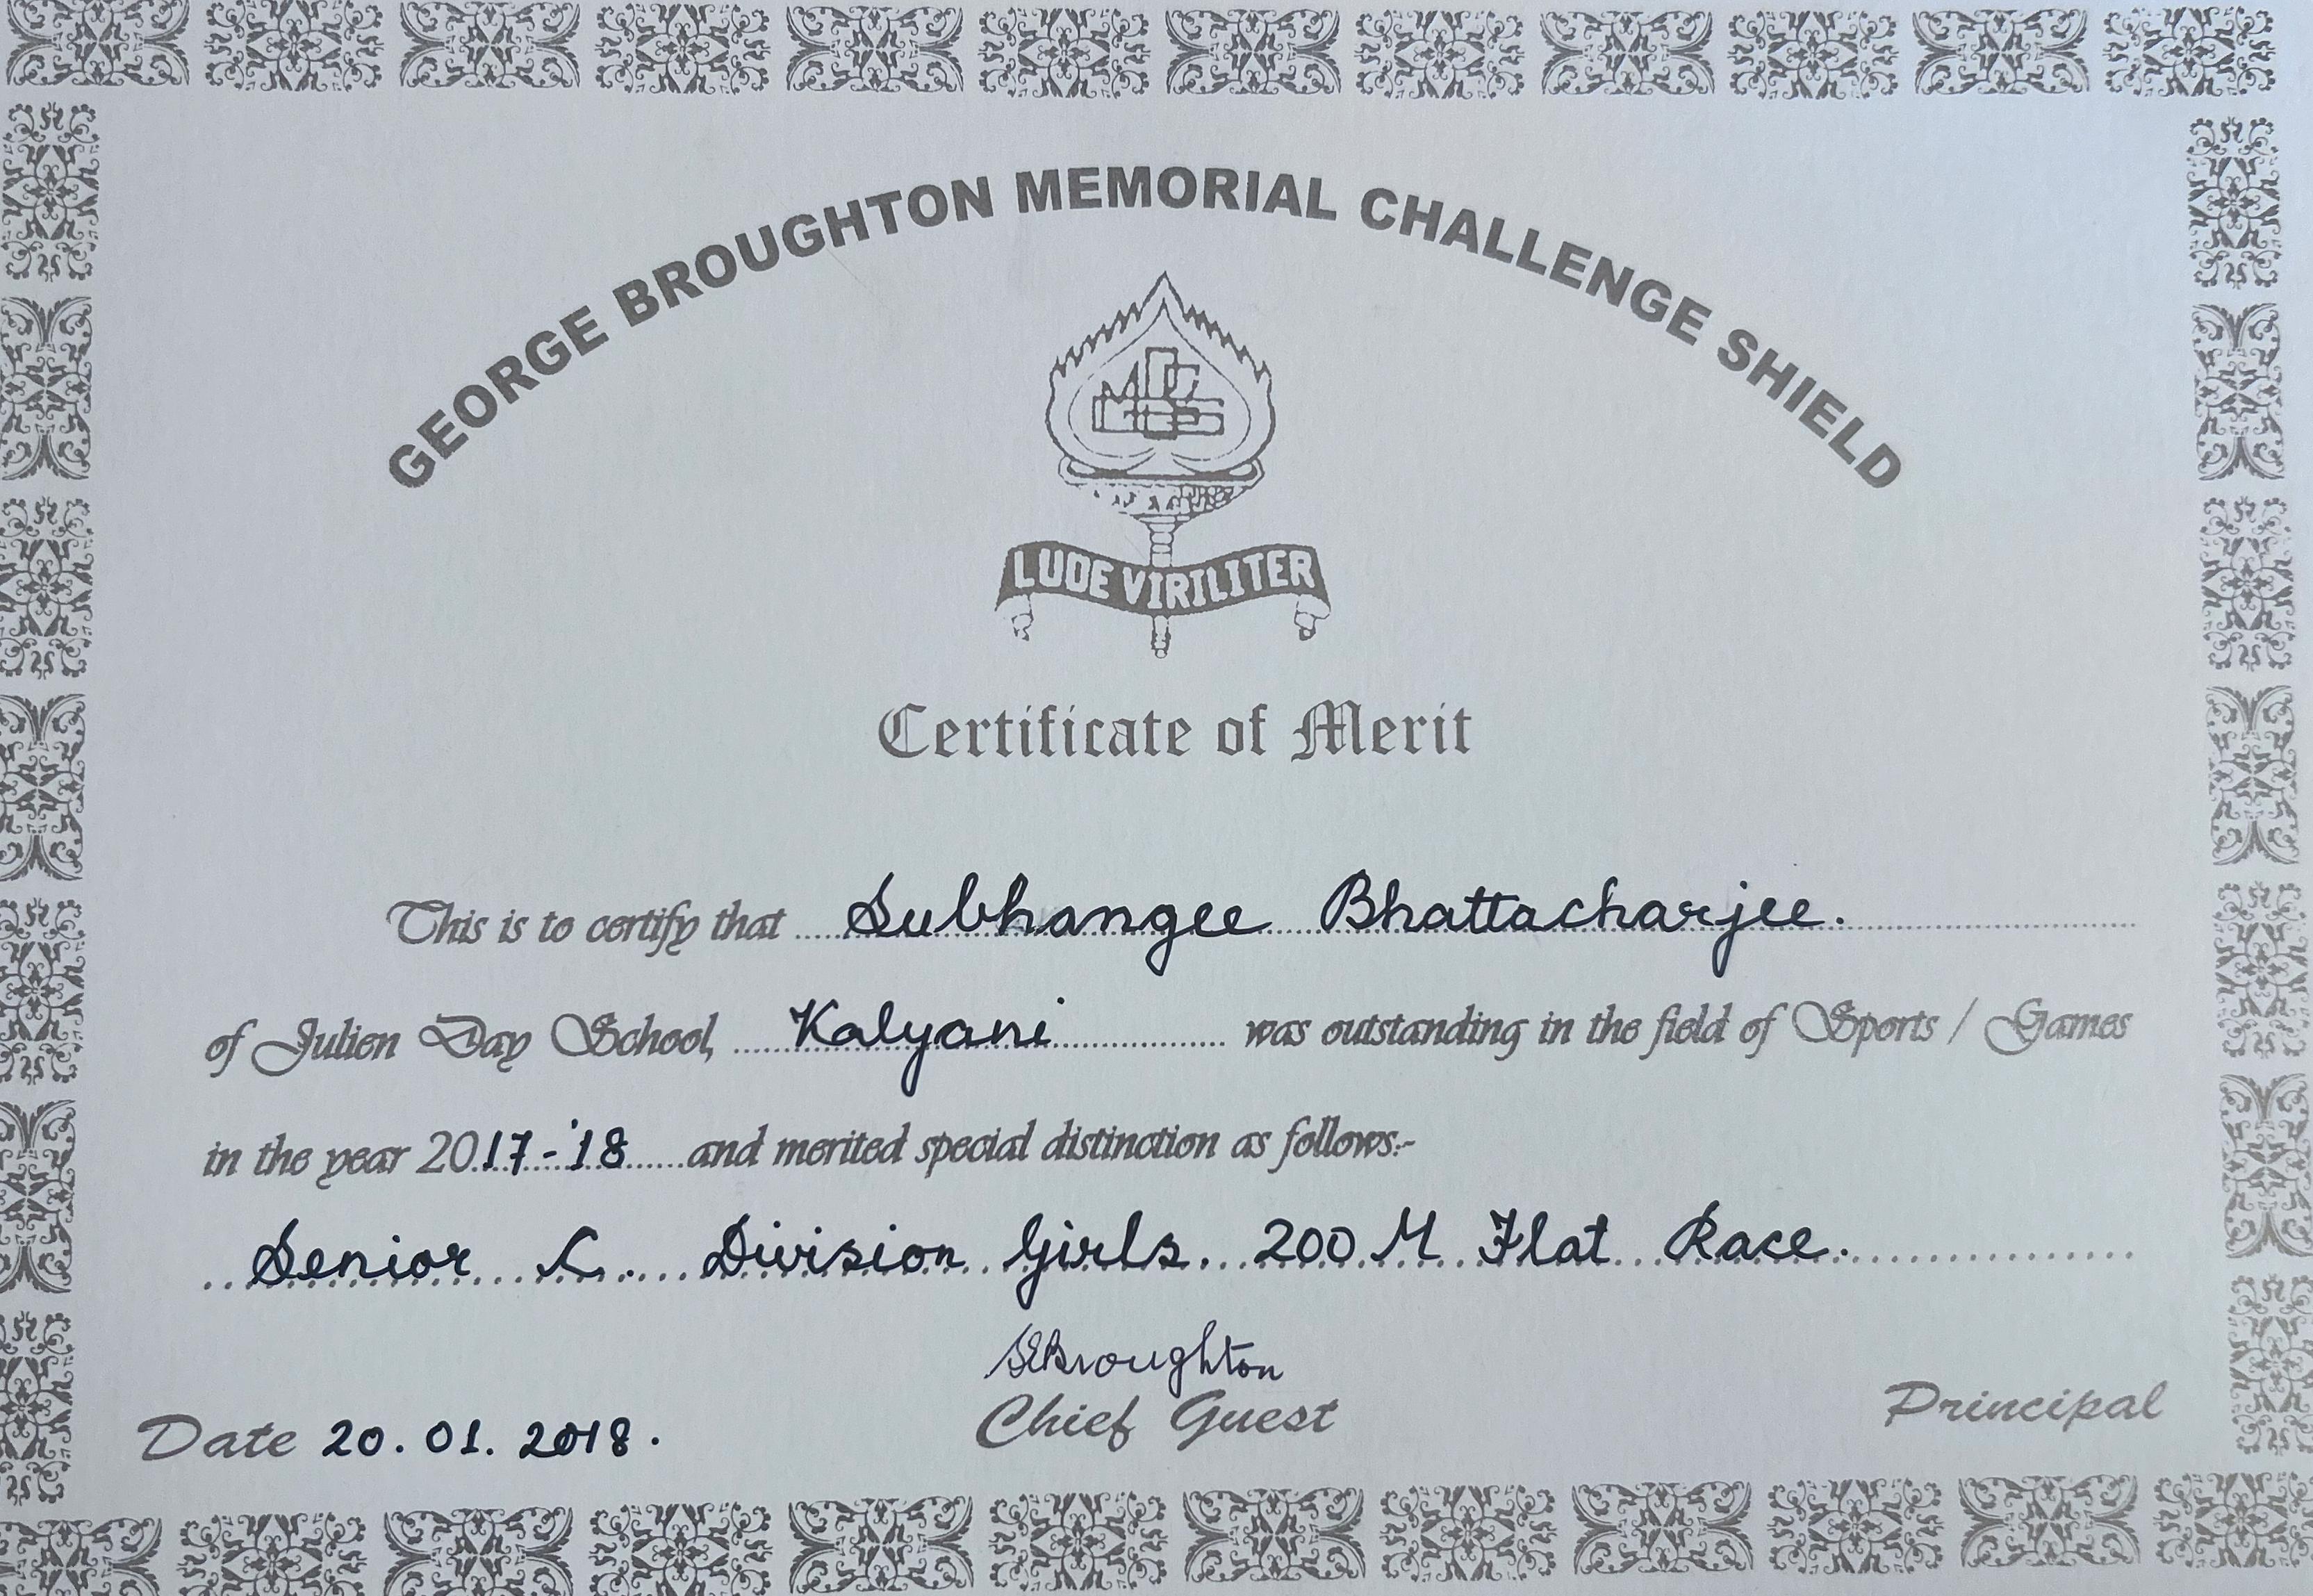 GEORGE BROUGHTON MEMORIAL CHALLENGE SHIELD
LUDE VIRILITER
Certificate of Merit
This is to certify that Subhangee Bhattacharjee.
of Julien Day School, Kalyani was outstanding in the field of Sports / Games
in the year 2017-'18 and merited special distinction as follows:-
Senior Division Girls 200 M Flat Race.
Broughton
Date 20.01.2018. Chief Guest Principal